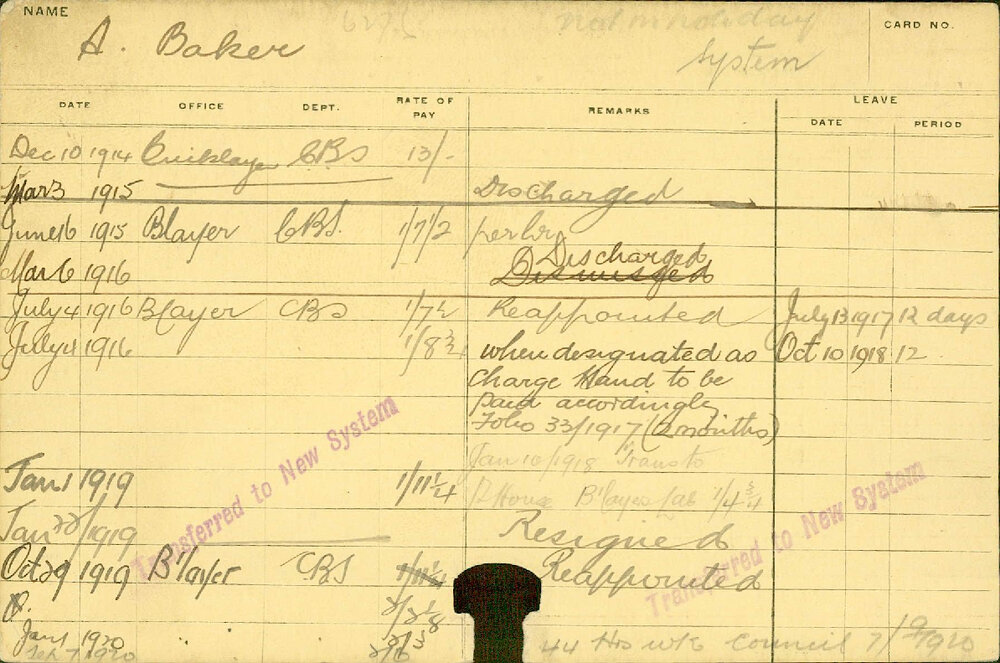 NAME
A. Baker
not on holiday
system
CARD NO.
DATE OFFICE DEPT. RATE OF PAY REMARKS LEAVE
DATE PERIOD
Dec 10 1914 Bricklayer CBS 13/-
Mar 3 1915 Discharged
June 16 1915 Blayer CBS. 1/7 1/2 per hr
Discharged
Mar 6 1916 Dismissed
July 4 1916 Blayer CBS 1/7 1/2 Reappointed July 13 1917 12 days
July 4 1916 1/8 3/4 when designated as Oct 10 1918 12
charge Hand to be
paid accordingly
Folio 33/1917 (2 months)
Jan 10/1918 Trans to
Jan 1 1919 1/11 1/4 P House B'layer Lab 1/4 3/4
Jan 22/1919 Resigned
Oct 29 1919 B'layer CBS 1/11 1/4 Reappointed
2/2 1/8
Jan 1 1920
Sep 7 1920 44 Hrs wk Council 7/9/1920
Transferred to New System
Transferred to New System